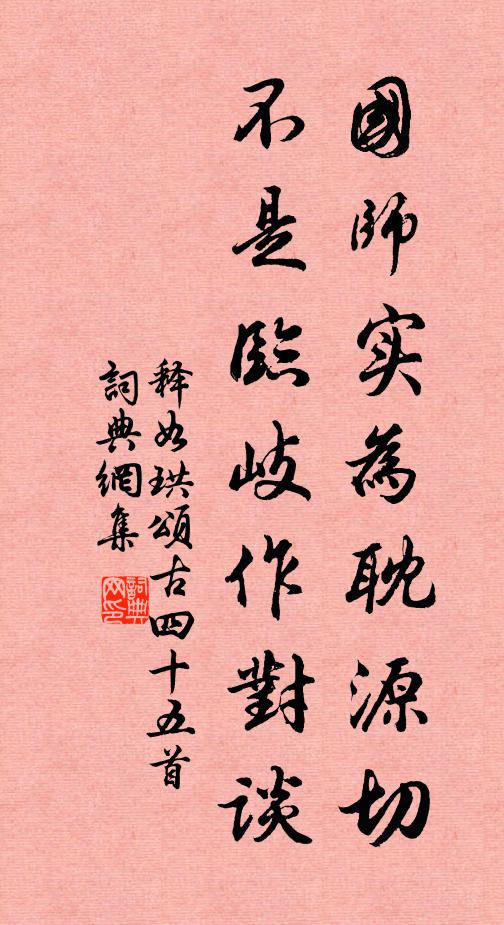 國師实為耽源切
不是臨歧作對談
释如珙頌古四十五首
詞典網集
詞典網印